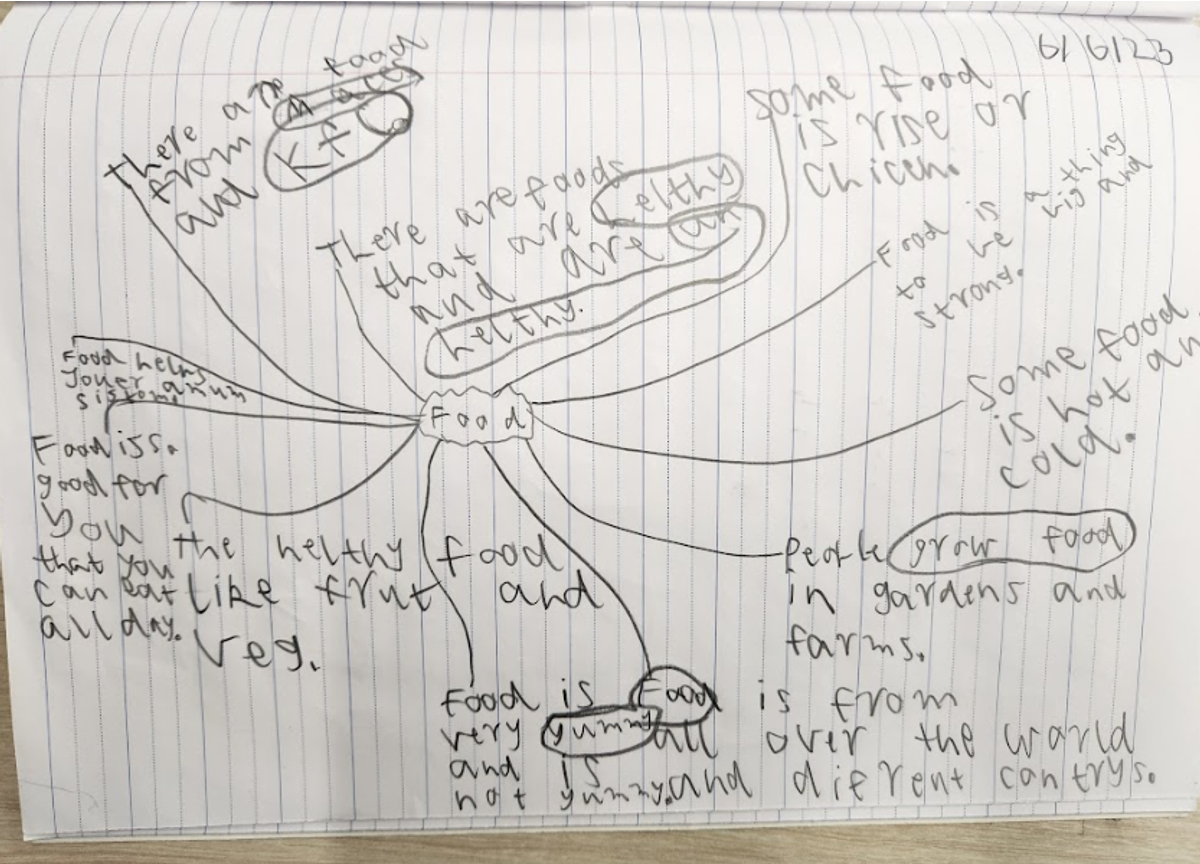 6/6/23
there are food
from maca
and KFC
There are foods
that are helthy
and are un
helthy.
some food
is rise or
chicen.
Food is a big thing
to be and
strong.
Some food
is hot an
cold.
Food
People grow food
in gardens and
farms.
Food is from
all over the world
and diferent cantrys.
Food is
very yummy
and is
not yummy.
the helthy food
like frut and
veg.
Food iss.
good for
you
that you
can eat
all day.
Food helps
youer amum
sistom.